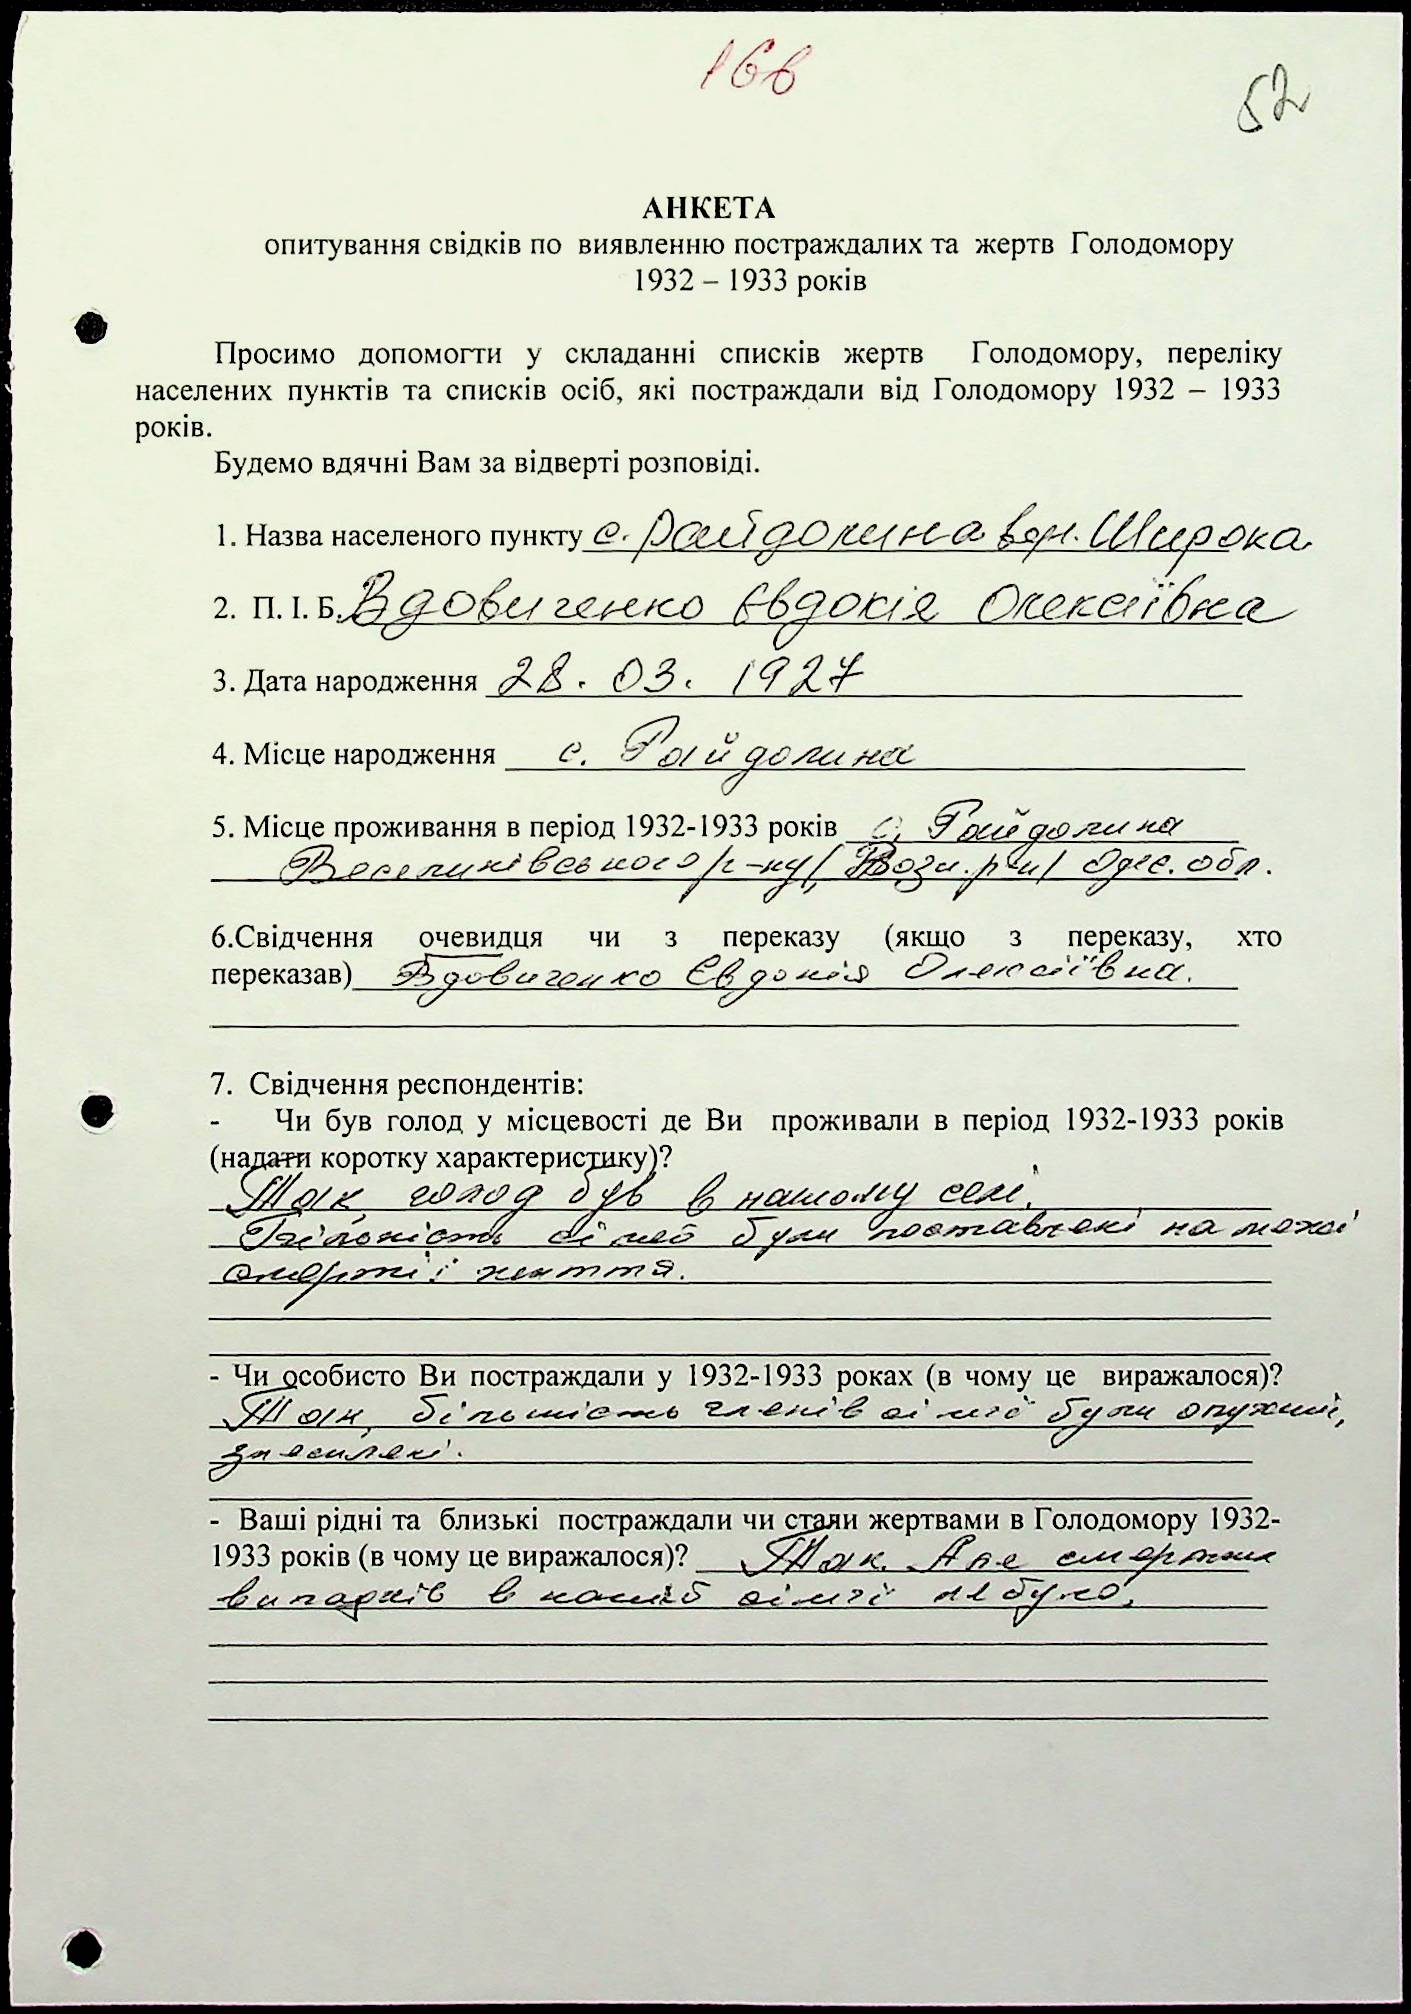 16в
52
АНКЕТА
опитування свідків по виявленню постраждалих та жертв Голодомору
1932 – 1933 років
Просимо допомогти у складанні списків жертв Голодомору, переліку
населених пунктів та списків осіб, які постраждали від Голодомору 1932 – 1933
років.
Будемо вдячні Вам за відверті розповіді.
1. Назва населеного пункту с. Райдолина вул. Широка
2. П. І. Б. Вдовиченко Євдокія Олексіївна
3. Дата народження 28. 03. 1927
4. Місце народження с. Райдолина
5. Місце проживання в період 1932-1933 років с. Райдолина
Веселинівського р-ну / Возн. р-н / Одес. обл.
6.Свідчення очевидця чи з переказу (якщо з переказу, хто
переказав) Вдовиченко Євдокія Олексіївна.
7. Свідчення респондентів:
- Чи був голод у місцевості де Ви проживали в період 1932-1933 років
(надати коротку характеристику)?
Так, голод був в нашому селі.
Більшість сімей були поставлені на межі
смерті і життя.
- Чи особисто Ви постраждали у 1932-1933 роках (в чому це виражалося)?
Так, більшість членів сім'ї були опухши,
знесилені.
- Ваші рідні та близькі постраждали чи стали жертвами в Голодомору 1932-
1933 років (в чому це виражалося)? Так. Але смертних
випадків в нашій сім'ї не було.